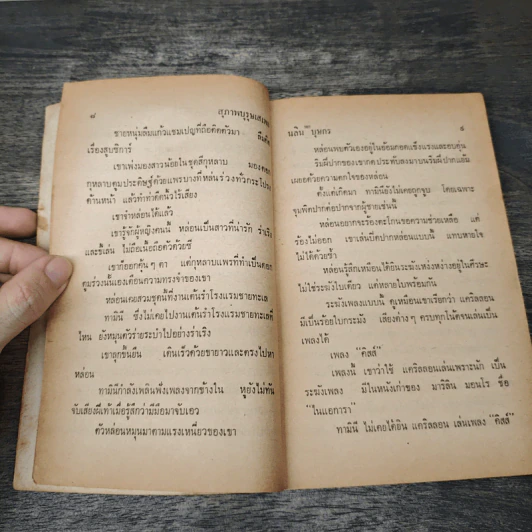 ๘
สุภาพบุรุษเสเพล
ชายหนุ่มลืมแก้วแชมเปญที่ถือติดตัวมา ลืมคิด
เรื่องสูบซิการ์
เขาเพ่งมองสาวน้อยในชุดสีกุหลาบ มองดอก
กุหลาบตูมประดิษฐ์ด้วยแพรบางที่หล่นร่วงทั้งกระโปรง
ด้านหน้า แล้วก็ทำท่าดนไว้ไร้เสียง
เขาจำหล่อนได้แล้ว
เขารู้จักผู้หญิงคนนี้ หล่อนเป็นสาวที่น่ารัก ร่าเริง
และขี้เล่น ไม่ถือเนื้อถือตัวด้วยซี
เขาก็ออกคุ้น ๆ ตา แต่กุหลาบแพรที่ทำเป็นดอก
ตูมร่วงนั่นเองเตือนความทรงจำของเขา
หล่อนเคยสวมชุดนี้ที่งานเต้นรำโรงแรมชายทะเล
ทามินี ซึ่งไม่เคยไปงานเต้นรำโรงแรมชายทะเลที่
ไหน ยังหมุนตัวร่ายระบำไปอย่างร่าเริง
เขาลุกขึ้นยืน เดินเร็วด้วยขายาวและตรงไปหา
หล่อน
ทามินีกำลังเพลินฟังเพลงจากข้างใน หูยังไม่ทัน
จับเสียงฝีเท้าเมื่อรู้สึกว่ามีมือมาจับเอว
ตัวหล่อนหมุนมาตามแรงเหนี่ยวของเขา
นลิน บุษกร
๙
หล่อนพบตัวเองอยู่ในอ้อมกอดแข็งแรงและอบอุ่น
ริมฝีปากของเขากดประทับลงมาบนริมฝีปากแย้ม
เผยอด้วยความตกใจของหล่อน
ตั้งแต่เกิดมา ทามินียังไม่เคยถูกจูบ โดยเฉพาะ
จุมพิตปากต่อปากจากผู้ชายเช่นนี้
หล่อนอยากจะร้องตะโกนขอความช่วยเหลือ แต่
ร้องไม่ออก เขาเล่นปิดปากหล่อนแบบนี้ แทบหายใจ
ไม่ได้ด้วยซ้ำ
หล่อนรู้สึกเหมือนได้ยินระฆังเหง่งหง่างอยู่ในศีรษะ
ไม่ใช่ระฆังใบเดียว แต่หลายใบพร้อมกัน
ระฆังเพลงแบบนี้ ดูเหมือนเขาเรียกว่า แคริลลอน
มีเป็นร้อยใบกระมัง เสียงต่างๆ ครบทุกโน้ตจนเล่นเป็น
เพลงได้
เพลง “คิสส์”
เพลงนี้ เขาว่าใช้ แคริลลอนเล่นเพราะนัก เป็น
ระฆังเพลง มีในหนังเก่าของ มาริลิน มอนโร ชื่อ
“ไนแอการา”
ทามินี ไม่เคยได้ยิน แคริลลอน เล่นเพลง “คิสส์”